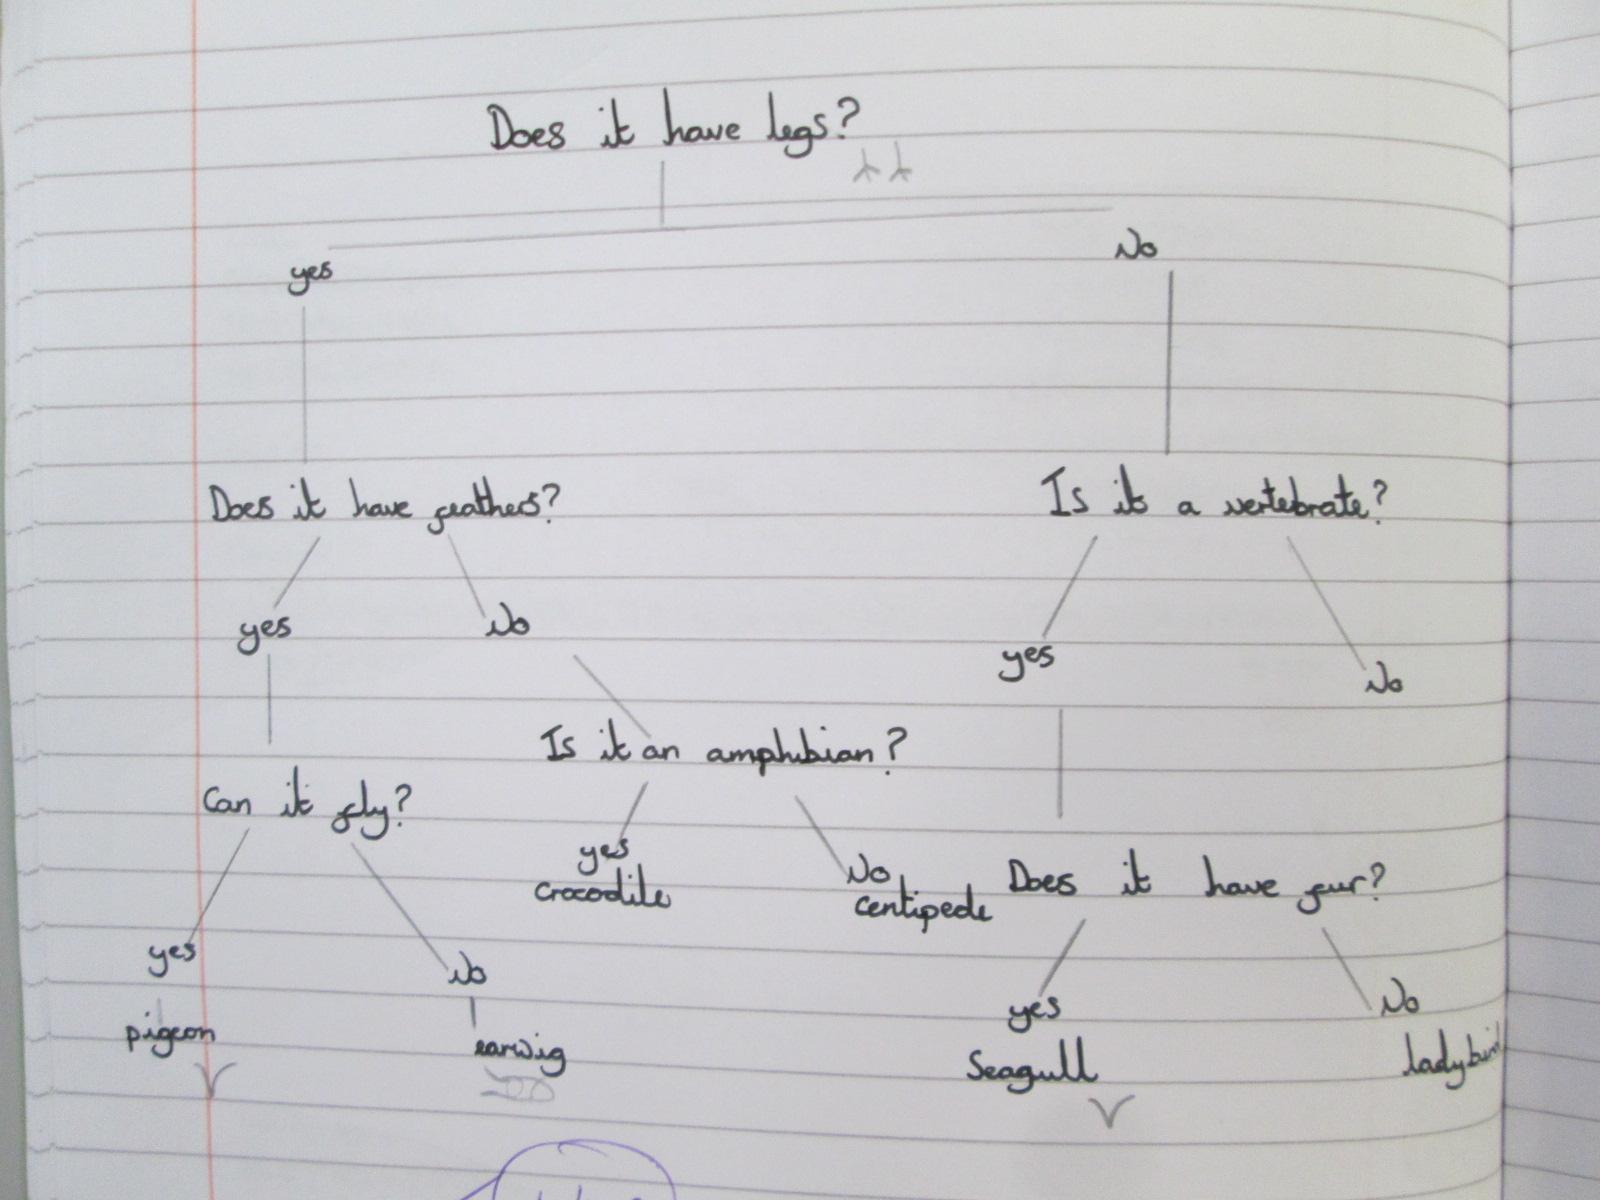 Does it have legs?
yes
No
Does it have feathers?
Is it a vertebrate?
yes
No
yes
No
Is it an amphibian?
Can it fly?
yes
crocodile
No
centipede
Does it have fur?
yes
No
yes
No
pigeon
earwig
Seagull
ladybird